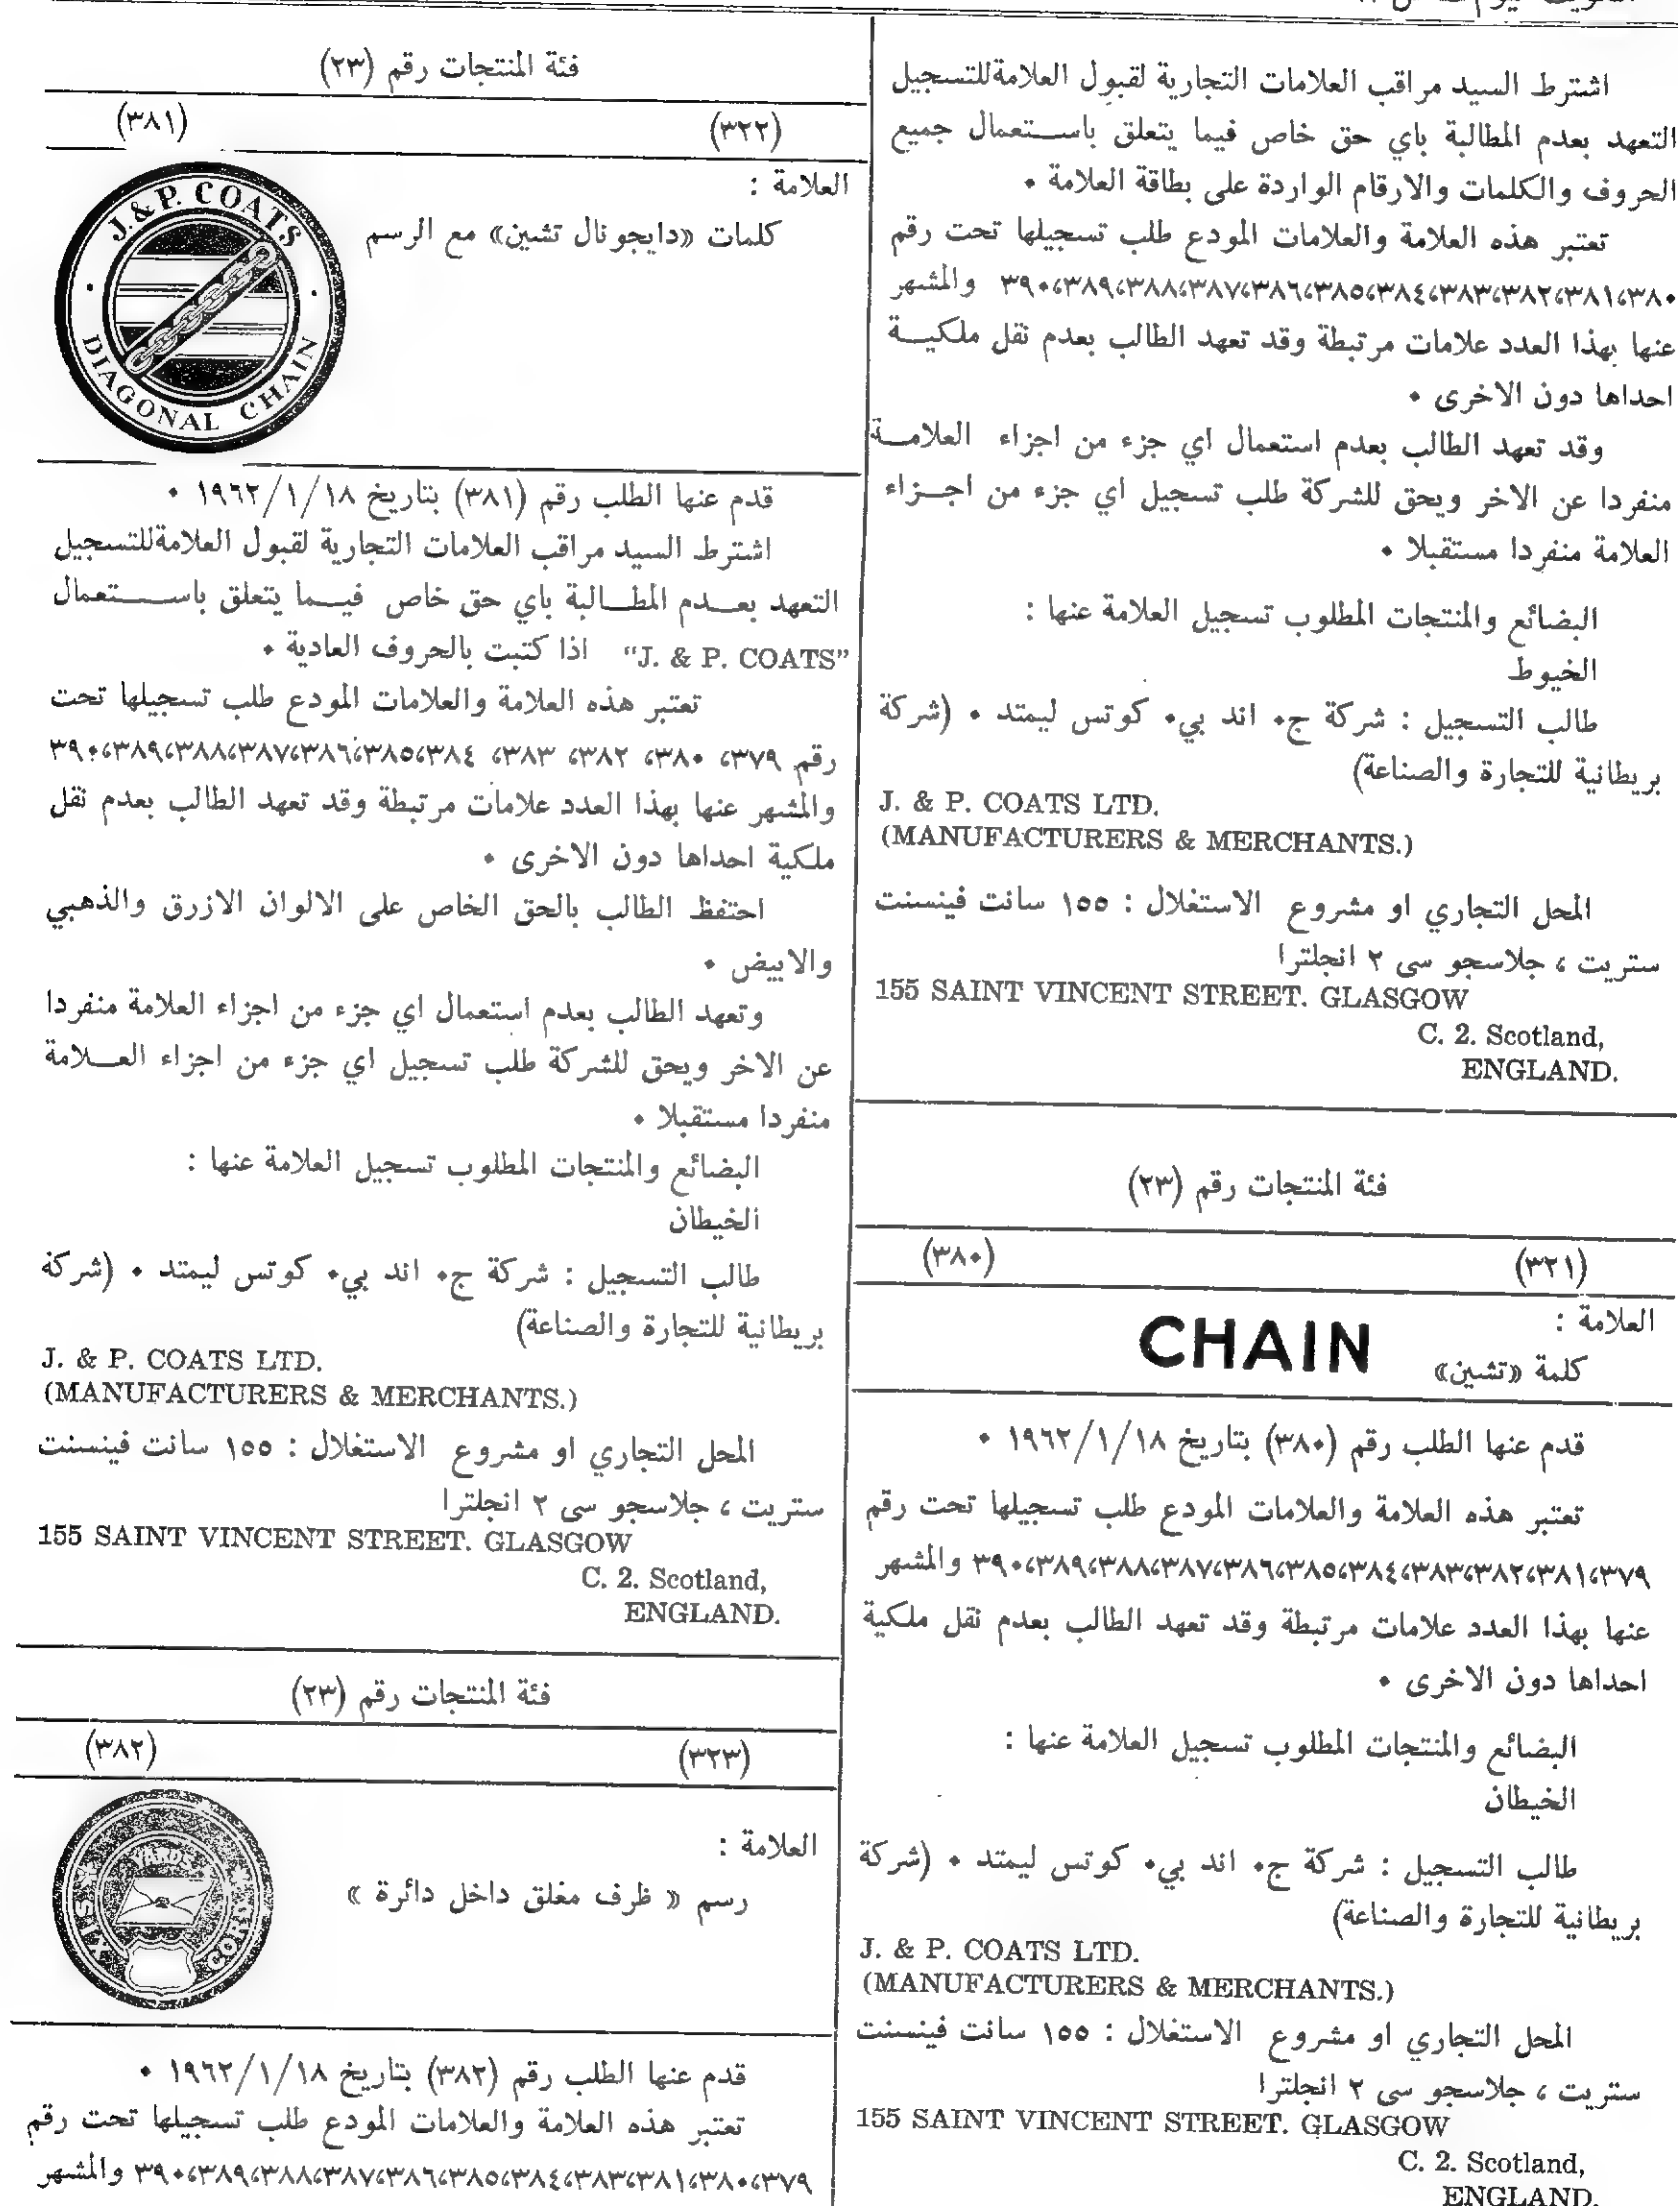 اشترط السيد مراقب العلامات التجارية لقبول العلامةللتسجيل
التعهد بعدم المطالبة باي حق خاص فيما يتعلق باستعمال جميع
الحروف والكلمات والارقام الواردة على بطاقة العلامة ٠
تعتبر هذه العلامة والعلامات المودع طلب تسجيلها تحت رقم
٣٨٠،٣٨١،٣٨٢،٣٨٣،٣٨٤،٣٨٥،٣٨٦،٣٨٧،٣٨٨،٣٨٩،٣٩٠ والمشهر
عنها بهذا العدد علامات مرتبطة وقد تعهد الطالب بعدم نقل ملكيـة
احداها دون الاخرى ٠
وقد تعهد الطالب بعدم استعمال اي جزء من اجزاء العلامـة
منفردا عن الاخر ويحق للشركة طلب تسجيل اي جزء من اجـزاء
العلامة منفردا مستقبلا ٠
البضائع والمنتجات المطلوب تسجيل العلامة عنها :
الخيوط
طالب التسجيل : شركة ج٠ اند بي٠ كوتس ليمتد ٠ (شركة
بريطانية للتجارة والصناعة)
J. & P. COATS LTD.
(MANUFACTURERS & MERCHANTS.)
المحل التجاري او مشروع الاستغلال : ١٥٥ سانت فينسنت
ستريت ، جلاسجو سى ٢ انجلترا
155 SAINT VINCENT STREET. GLASGOW
C. 2. Scotland,
ENGLAND.
فئة المنتجات رقم (٢٣)
(٣٢١) (٣٨٠)
العلامة :
كلمة «تشين» CHAIN
قدم عنها الطلب رقم (٣٨٠) بتاريخ ١٩٦٢/١/١٨ ٠
تعتبر هذه العلامة والعلامات المودع طلب تسجيلها تحت رقم
٣٧٩،٣٨١،٣٨٢،٣٨٣،٣٨٤،٣٨٥،٣٨٦،٣٨٧،٣٨٨،٣٨٩،٣٩٠ والمشهر
عنها بهذا العدد علامات مرتبطة وقد تعهد الطالب بعدم نقل ملكية
احداها دون الاخرى ٠
البضائع والمنتجات المطلوب تسجيل العلامة عنها :
الخيطان
طالب التسجيل : شركة ج٠ اند بي٠ كوتس ليمتد ٠ (شركة
بريطانية للتجارة والصناعة)
J. & P. COATS LTD.
(MANUFACTURERS & MERCHANTS.)
المحل التجاري او مشروع الاستغلال : ١٥٥ سانت فينسنت
ستريت ، جلاسجو سى ٢ انجلترا
155 SAINT VINCENT STREET. GLASGOW
C. 2. Scotland,
ENGLAND.
فئة المنتجات رقم (٢٣)
(٣٢٢) (٣٨١)
العلامة :
كلمات «دايجونال تشين» مع الرسم
J. & P. COATS
DIAGONAL CHAIN
قدم عنها الطلب رقم (٣٨١) بتاريخ ١٩٦٢/١/١٨ ٠
اشترط السيد مراقب العلامات التجارية لقبول العلامةللتسجيل
التعهد بعـدم المطـالبة باي حق خاص فيـما يتعلق باسـتعمال
“J. & P. COATS” اذا كتبت بالحروف العادية ٠
تعتبر هذه العلامة والعلامات المودع طلب تسجيلها تحت
رقم ٣٧٩، ٣٨٠، ٣٨٢، ٣٨٣، ٣٨٤،٣٨٥،٣٨٦،٣٨٧،٣٨٨،٣٨٩،٣٩٠
والمشهر عنها بهذا العدد علامات مرتبطة وقد تعهد الطالب بعدم نقل
ملكية احداها دون الاخرى ٠
احتفظ الطالب بالحق الخاص على الالوان الازرق والذهبي
والابيض ٠
وتعهد الطالب بعدم استعمال اي جزء من اجزاء العلامة منفردا
عن الاخر ويحق للشركة طلب تسجيل اي جزء من اجزاء العـلامة
منفردا مستقبلا ٠
البضائع والمنتجات المطلوب تسجيل العلامة عنها :
الخيطان
طالب التسجيل : شركة ج٠ اند بي٠ كوتس ليمتد ٠ (شركة
بريطانية للتجارة والصناعة)
J. & P. COATS LTD.
(MANUFACTURERS & MERCHANTS.)
المحل التجاري او مشروع الاستغلال : ١٥٥ سانت فينسنت
ستريت ، جلاسجو سى ٢ انجلترا
155 SAINT VINCENT STREET. GLASGOW
C. 2. Scotland,
ENGLAND.
فئة المنتجات رقم (٢٣)
(٣٢٣) (٣٨٢)
العلامة :
رسم « ظرف مغلق داخل دائرة »
YARDS
SIX
قدم عنها الطلب رقم (٣٨٢) بتاريخ ١٩٦٢/١/١٨ ٠
تعتبر هذه العلامة والعلامات المودع طلب تسجيلها تحت رقم
٣٧٩،٣٨٠،٣٨١،٣٨٣،٣٨٤،٣٨٥،٣٨٦،٣٨٧،٣٨٨،٣٨٩،٣٩٠ والمشهر